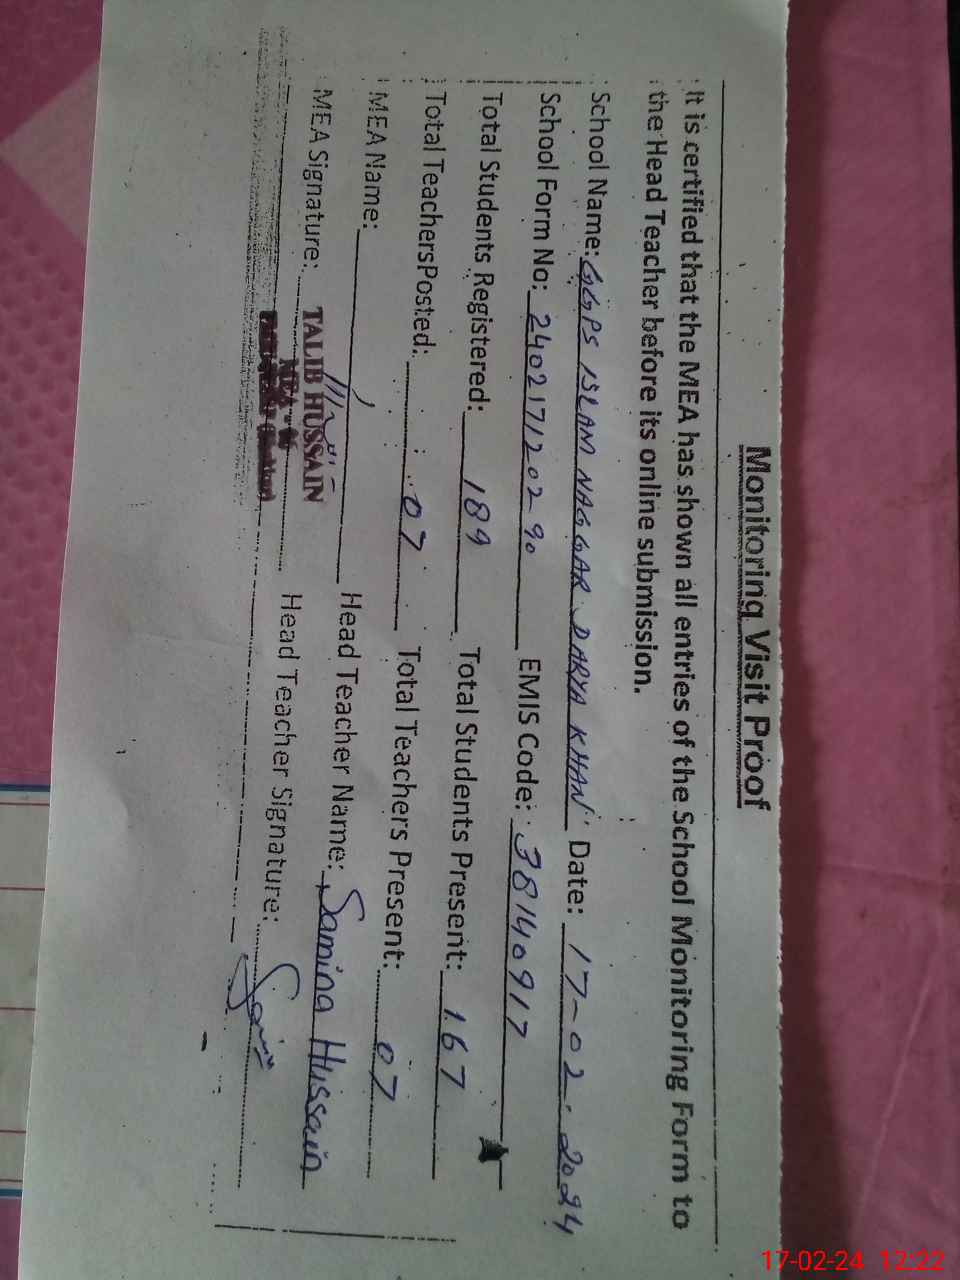 Monitoring Visit Proof
It is certified that the MEA has shown all entries of the School Monitoring Form to
the Head Teacher before its online submission.
School Name: GGPS ISLAM NAGGAR DARYA KHAN Date: 17-02-2024
School Form No: 24021712029 EMIS Code: 38140917
Total Students Registered: 189 Total Students Present: 167
Total TeachersPosted: 07 Total Teachers Present: 07
MEA Name: Head Teacher Name: Samina Hussain
MEA Signature: Head Teacher Signature:
TALIB HUSSAIN
MEA
17-02-24 12:22